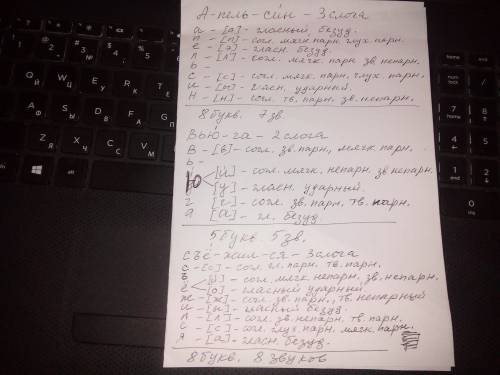 А-пель-си́н - 3 слога
а - [а] - гласный безуд.
п - [п] - согл. мягк. парн. глух. парн.
е - [э] - гласн. безуд.
л - [л] - согл. мягк. парн. зв. непарн.
ь -
с - [с] - согл. мягк. парн. глух. парн.
и - [и] - гласн. ударный.
н - [н] - согл. тв. парн. зв. непарн.
8 букв. 7 зв.
Вью́-га - 2 слога
в - [в] - согл. зв. парн, мягк. парн.
ь -
[й] - согл. мягк. непарн. зв. непарн.
ю
[у] - гласн. ударный.
г - [г] - согл. зв. парн. тв. парн.
а - [а] - гл. безуд
5 букв. 5 зв.
Съё-жил-ся - 3 слога
с - [с] - согл. гл. парн. тв. парн.
ъ [й] - согл. мягк. непарн. зв. непарн.
ё [о] - гласный ударный.
ж - [ж] - согл. зв. парн., тв. непарный
и - [ы] - гласный безуд.
л - [л] - согл. зв. непарн. тв. парн.
с - [с] - согл. глух. парн. мягк. парн.
я - [а] - гласн. безуд.
8 букв. 8 звуков